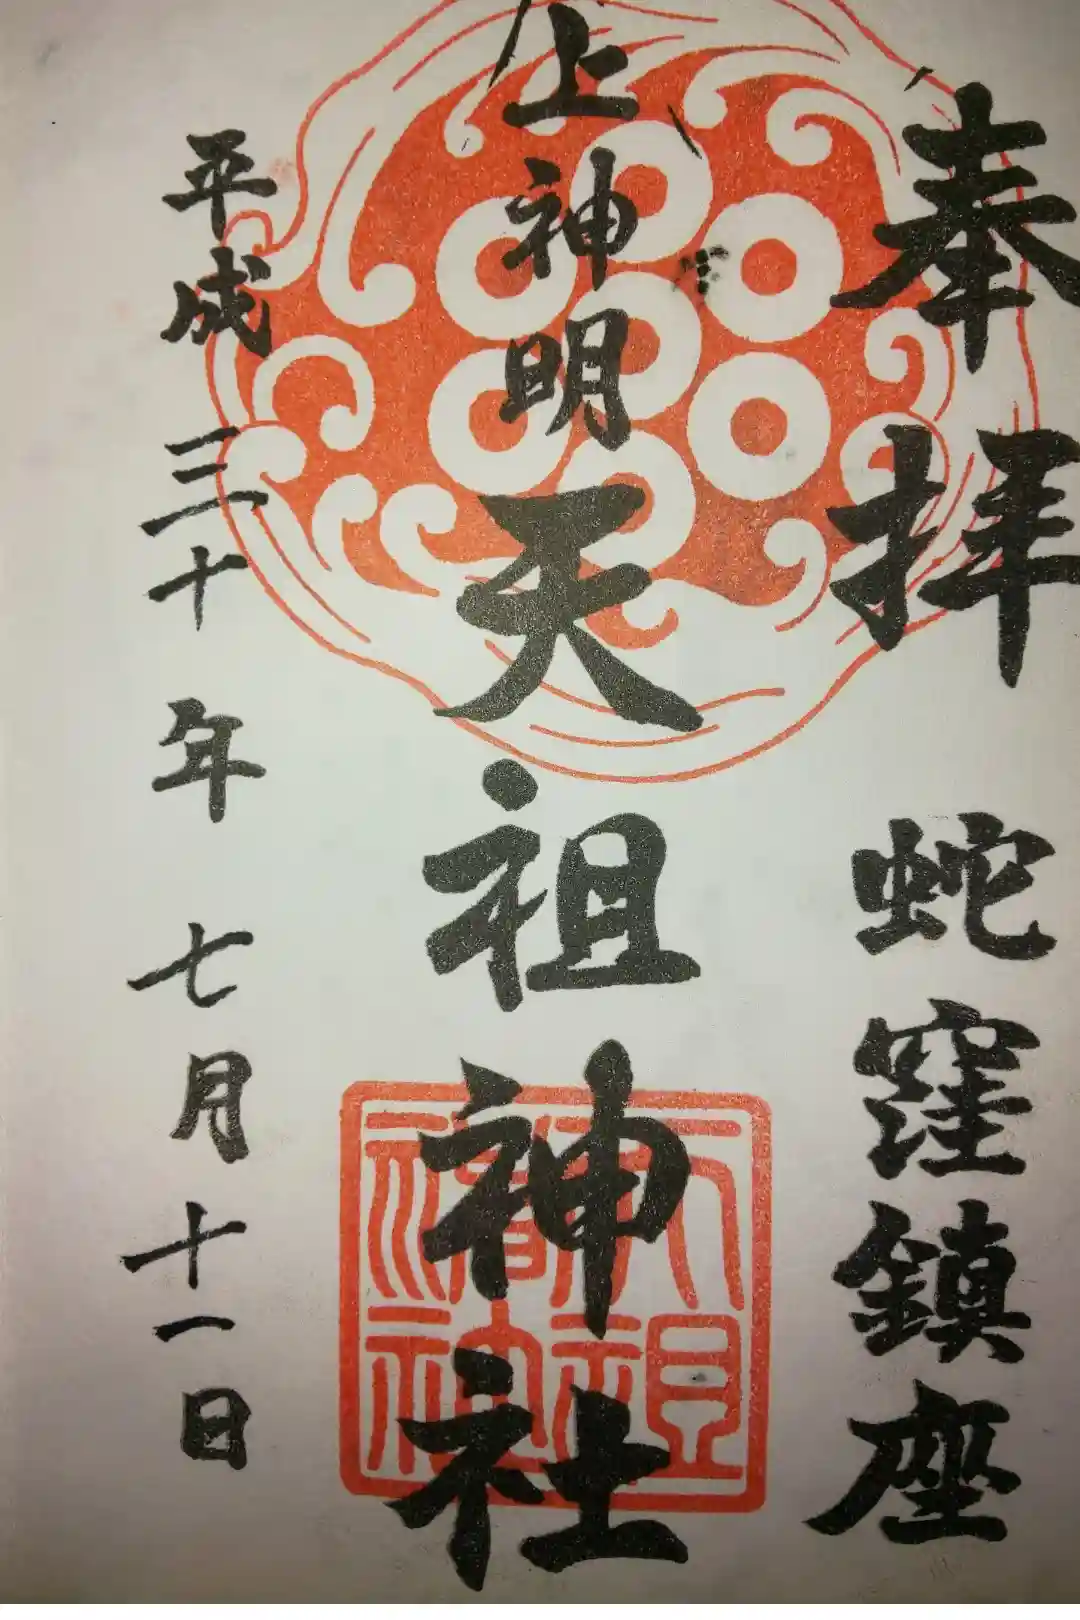 奉拝 蛇窪鎮座
上神明天祖神社
平成三十年七月十一日